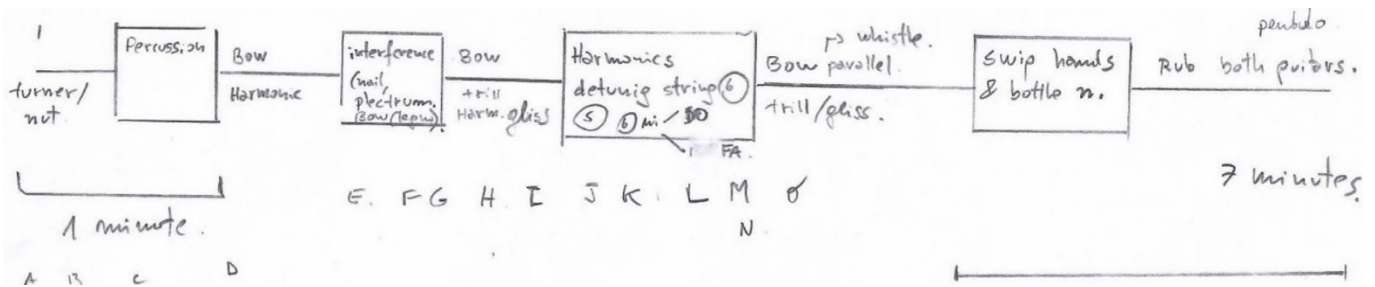 1
turner/
nut.
Percussion
Bow
Harmonic
interference
(nail,
plectrum.
Bow (legno).
Bow
trill
Harm. gliss
Harmonics
detunig string 6
5 6 mi
FA.
→ whistle.
Bow parallel.
trill/gliss.
Swip hands
& bottle n.
pendulo
Rub both guitars.
1 minute.
7 minutes.
A B C D
E. F G H. I J K. L M O
N